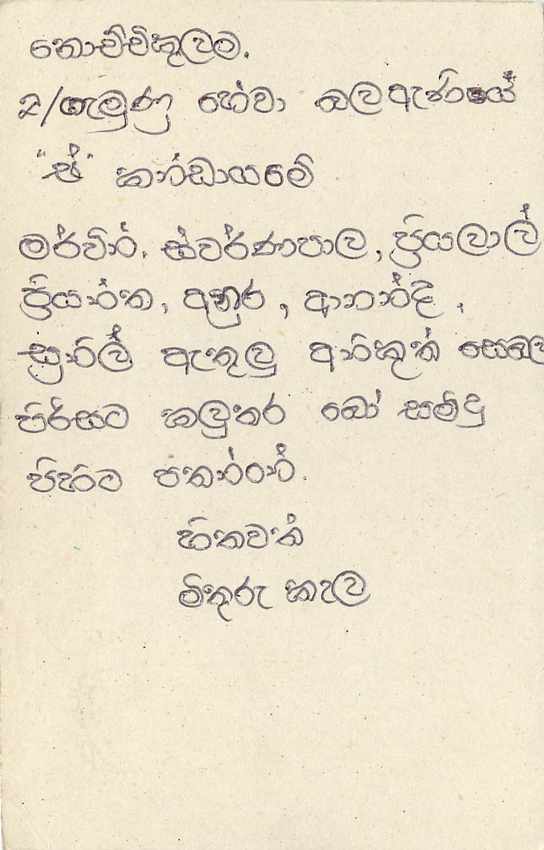 නොච්චිකුලම.
2/ගැමුණු හේවා බලඇණියේ
"ඒ" කාන්ඩායමේ
මර්වින්. ස්වර්ණපාල, ප්‍රියලාල්
ප්‍රියන්ත, අනුර, ආනන්ද,
සුනිල් ඇතුලු අනිකුත් සෙබල
පිරිසට කලුතර බෝ සමිදු
පිහිට පතන්නේ.
හිතවත්
මිතුරු කැල